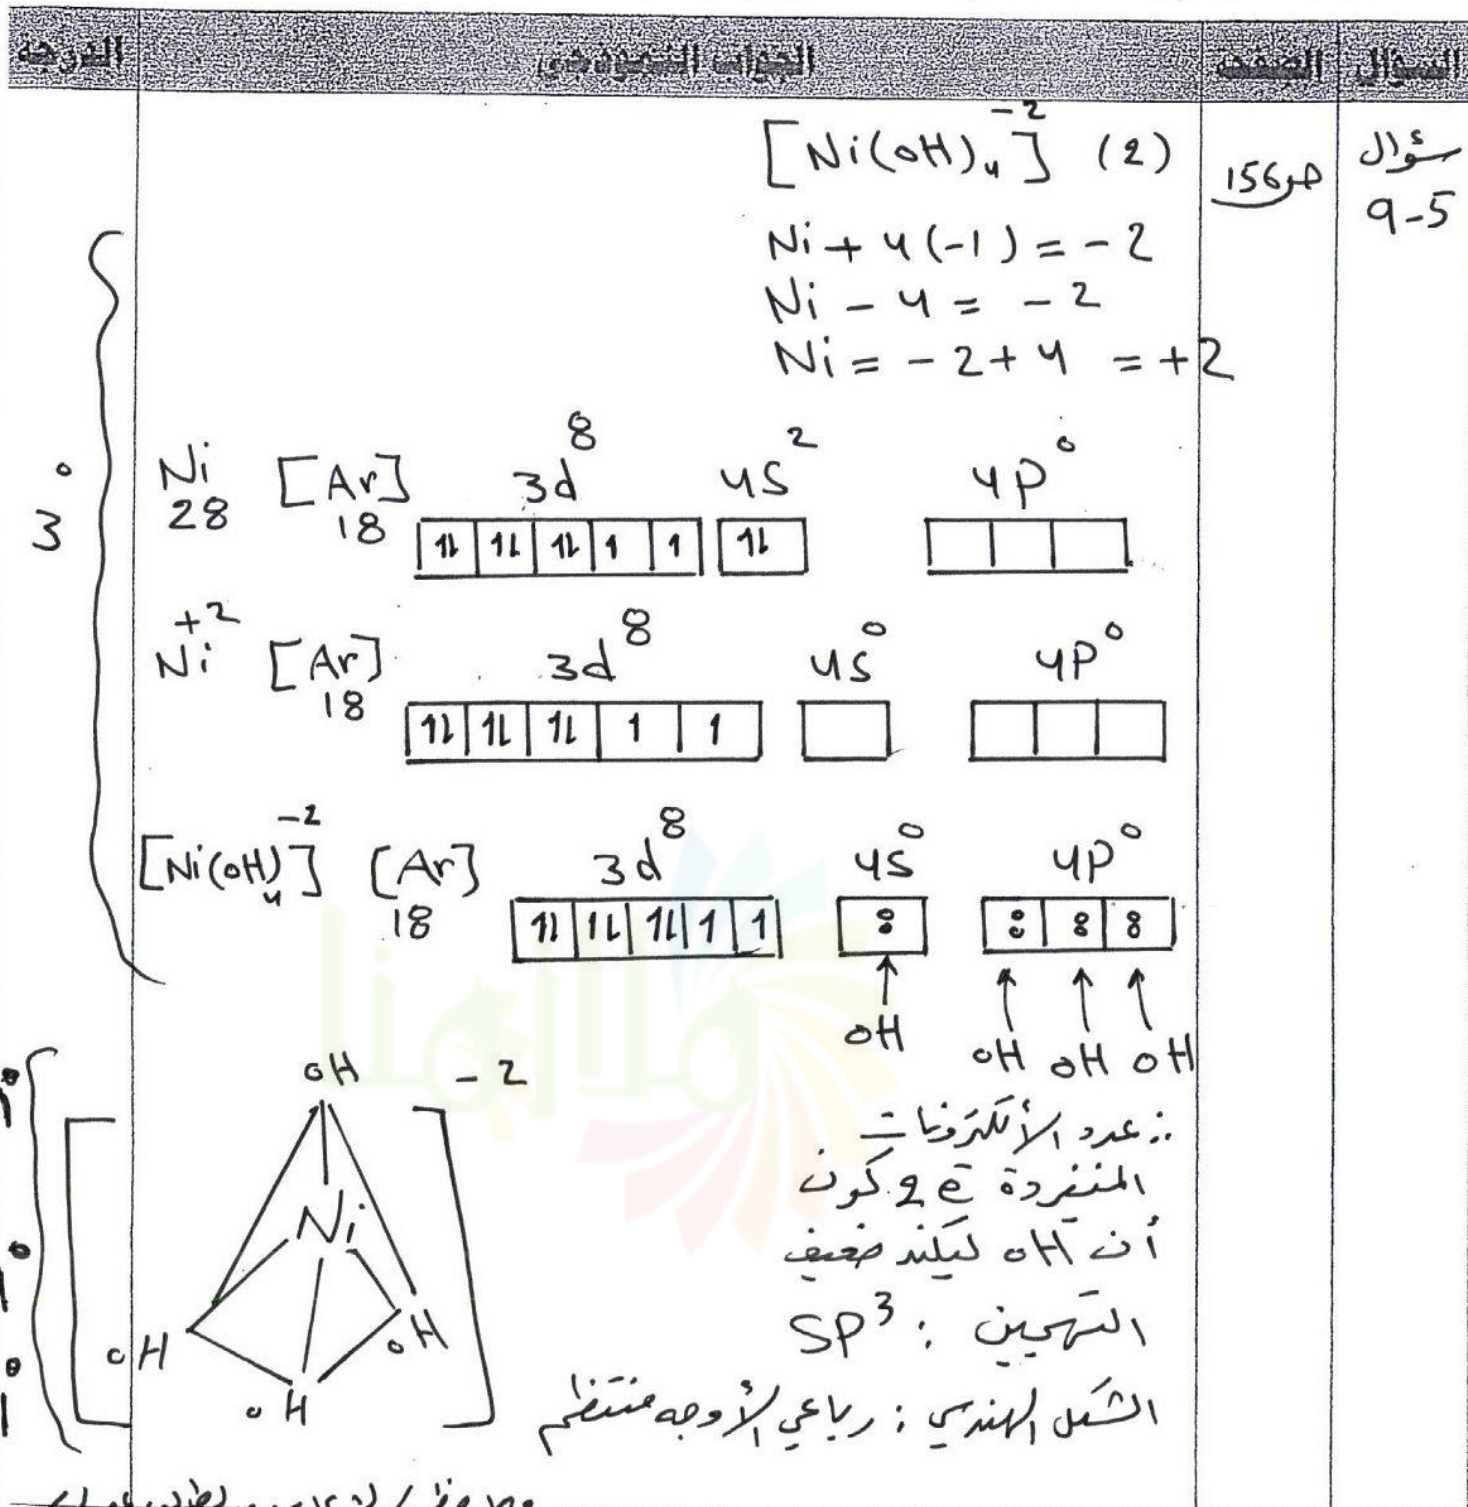 السؤال الصفحة الجواب النموذجي الدرجة
سؤال 9-5
ص156
[Ni(OH)₄]⁻² (2)
Ni + 4(-1) = -2
Ni - 4 = -2
Ni = -2 + 4 = +2
3°
Ni 28 [Ar] 18 3d⁸ 4S² 4P⁰
1L 1L 1L 1 1 1L
Ni⁺² [Ar] 18 3d⁸ 4S⁰ 4P⁰
1L 1L 1L 1 1
[Ni(OH)₄]⁻² [Ar] 18 3d⁸ 4S⁰ 4P⁰
1L 1L 1L 1 1 : : : :
OH OH OH OH
OH -2
Ni
OH OH
OH
∵ عدد الألكترونات
المنفردة 2e̅ كون
أن OH ليكند ضعيف
التهجين : SP³
الشكل الهندسي : رباعي الأوجه منتظم
1°
1°
1°
ملازمنا